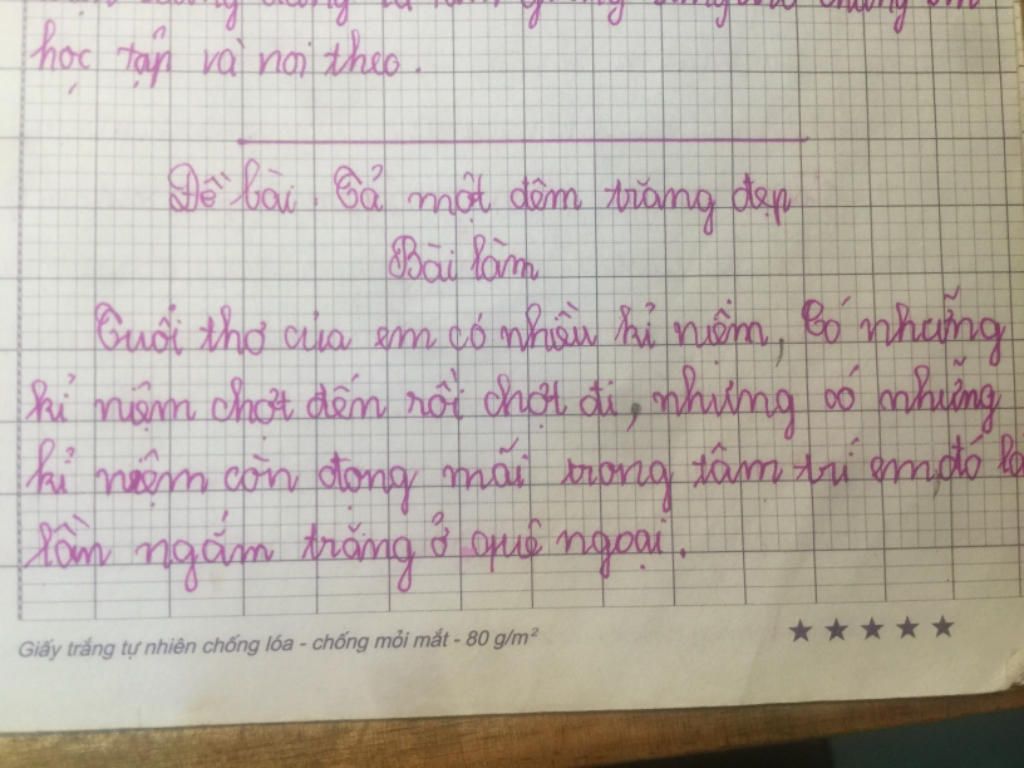 học tập và noi theo.
Đề bài. Tả một đêm trăng đẹp
Bài làm
Tuổi thơ của em có nhiều kỉ niệm, Có những
kỉ niệm chợt đến rồi chợt đi, nhưng có những
kỉ niệm còn đọng mãi trong tâm trí em, đó là
lần ngắm trăng ở quê ngoại.
Giấy trắng tự nhiên chống lóa - chống mỏi mắt - 80 g/m²